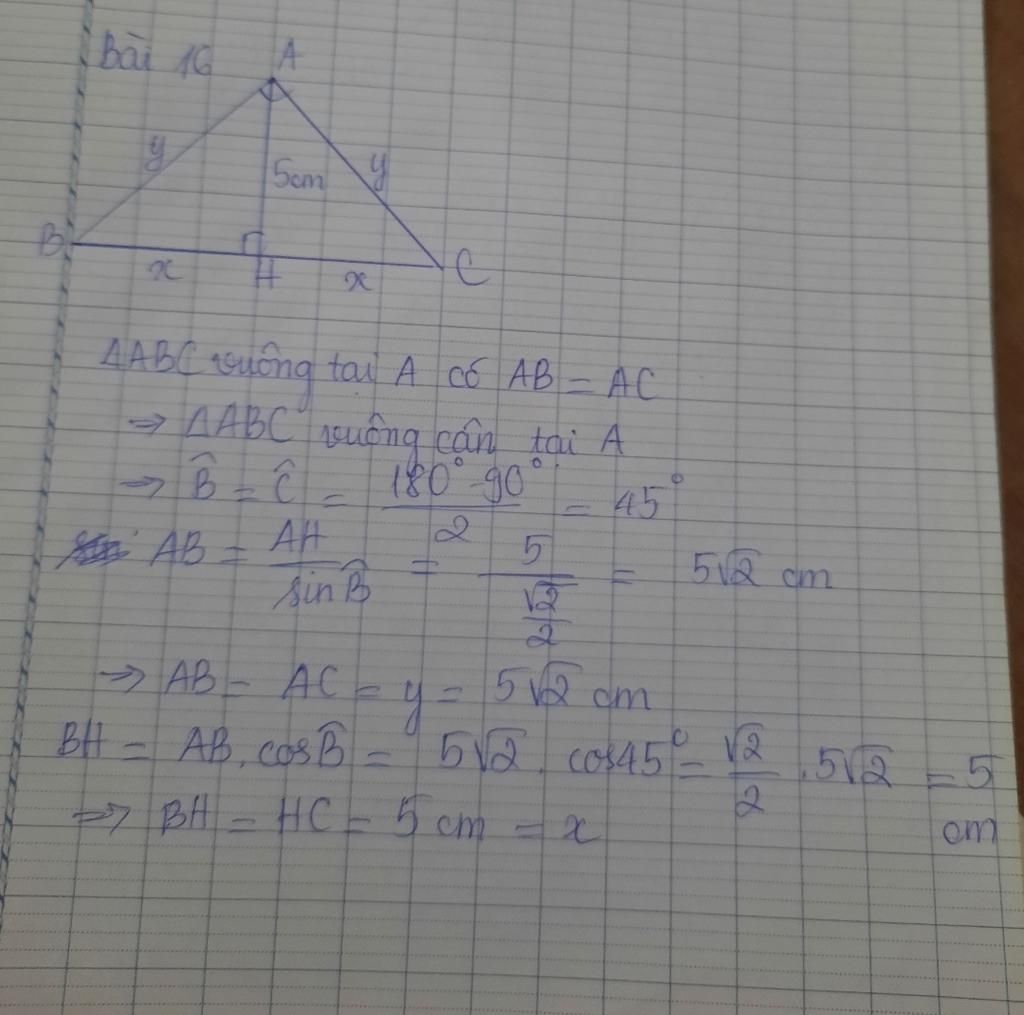 Bài 16
A
y
5cm
y
B
x
H
x
C
ΔABC vuông tại A có AB = AC
⇒ ΔABC vuông cân tại A
⇒ B̂ = Ĉ = (180° - 90°)/2 = 45°
AB = AH/sinB̂ = 5/(√2/2) = 5√2 cm
⇒ AB = AC = y = 5√2 cm
BH = AB. cosB̂ = 5√2. cos45° = √2/2 .5√2 = 5 cm
⇒ BH = HC = 5 cm = x